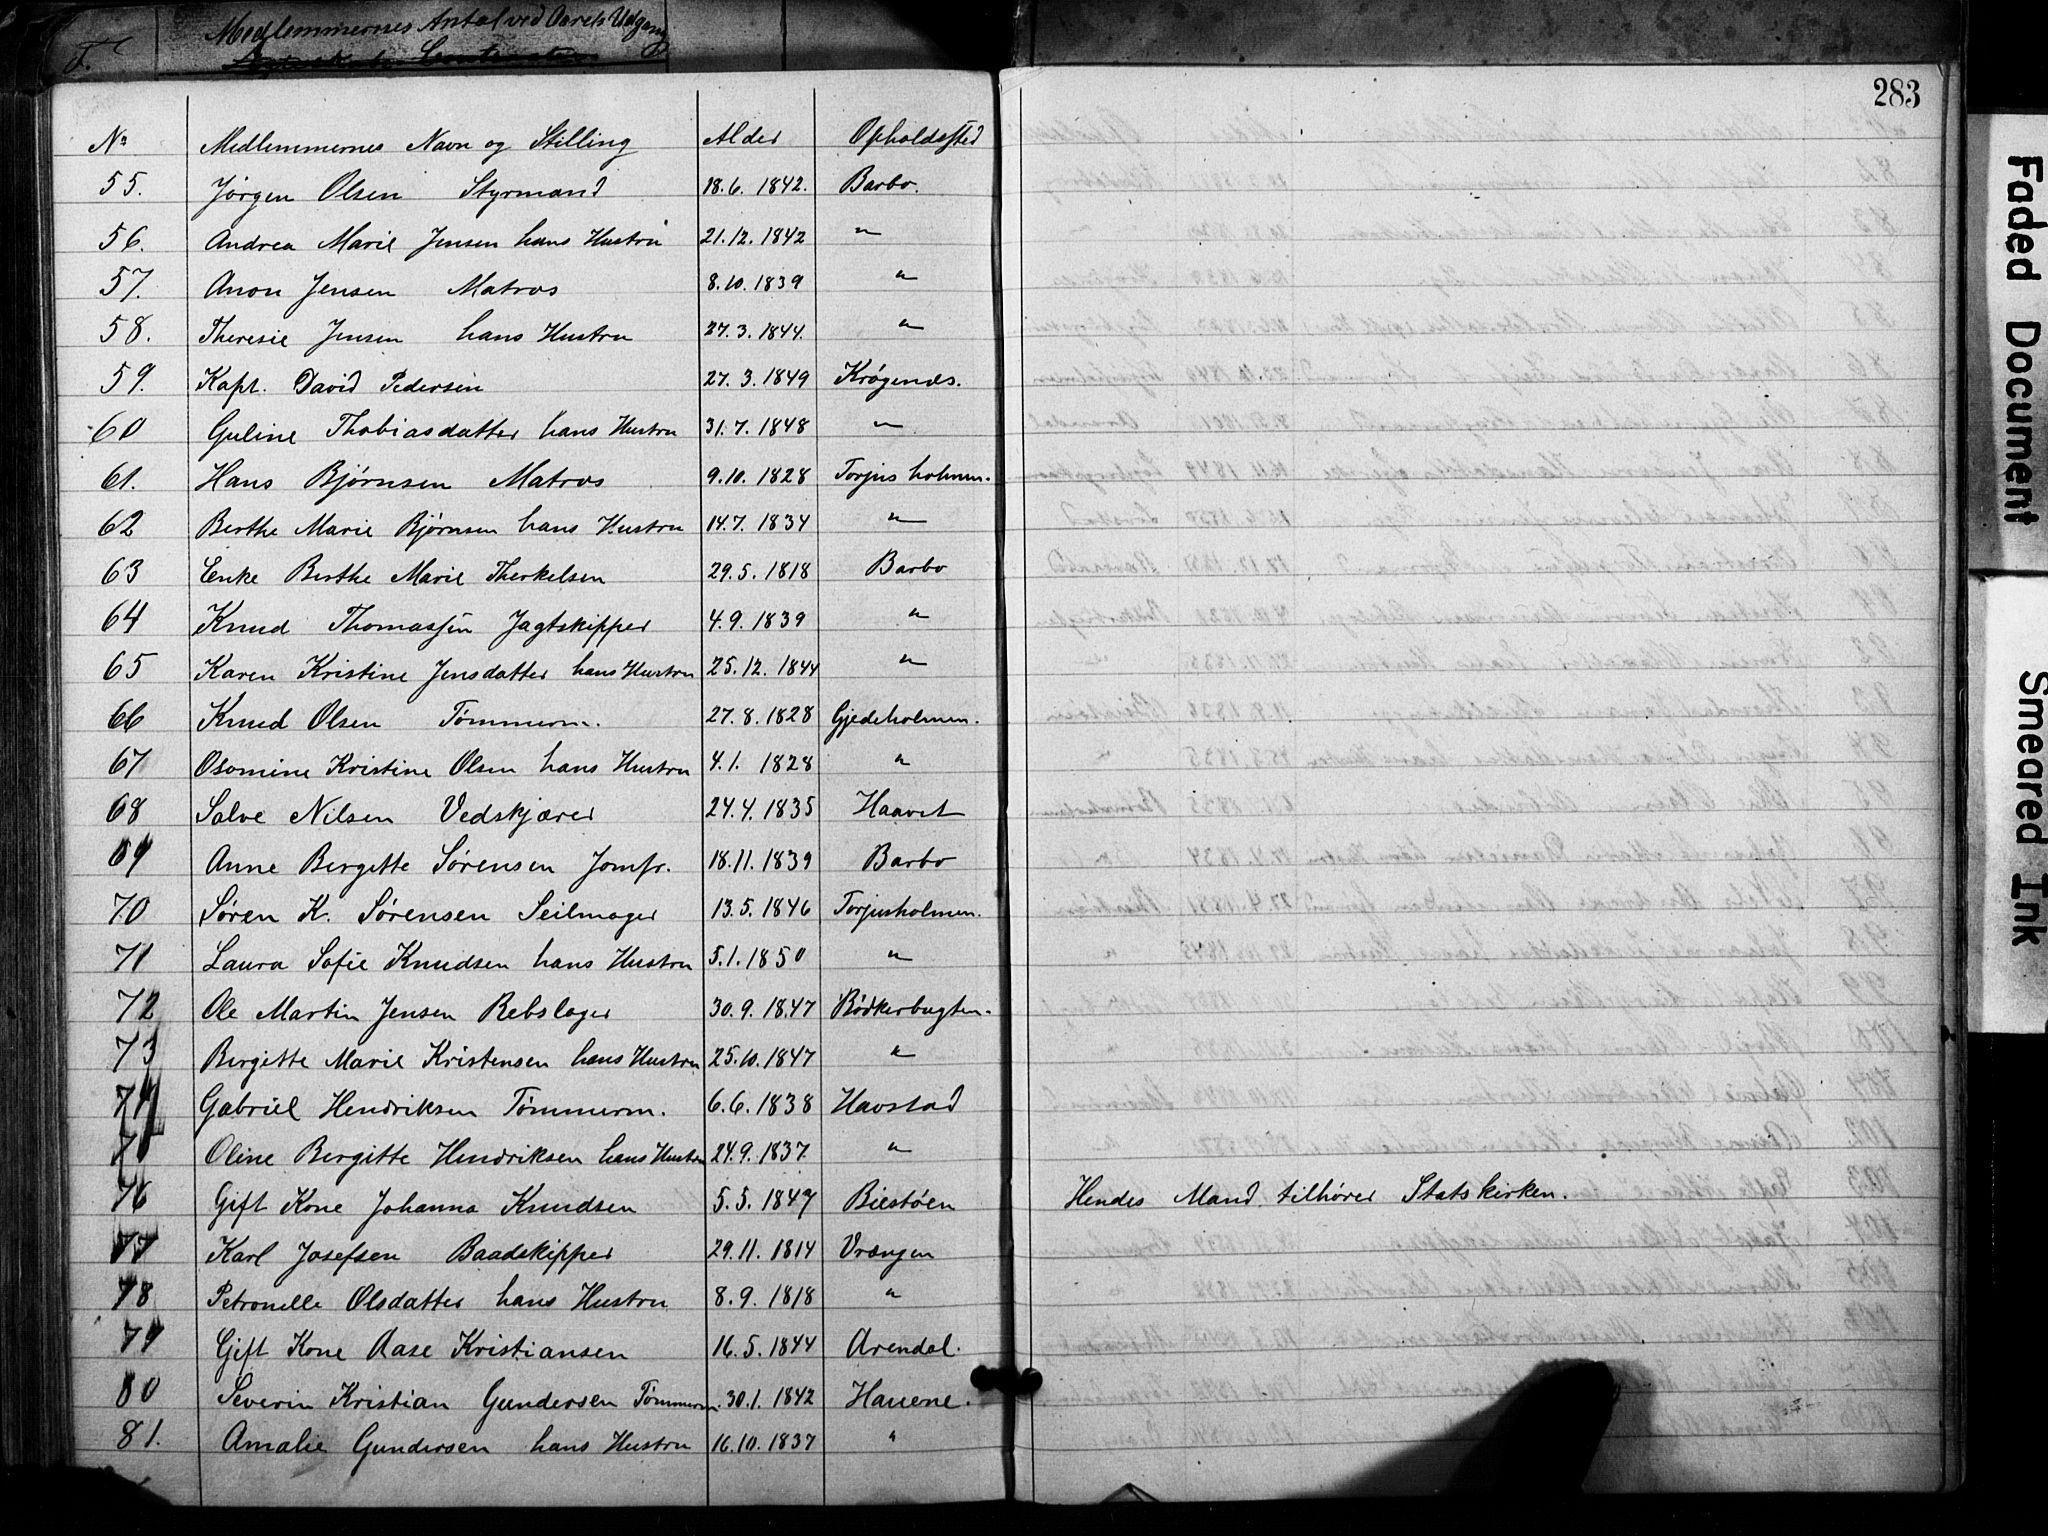 F. Medlemmernes Antal ved Aarets Udgang
283
No Medlemmernes Navn og Stilling Alder Opholdssted
55. Jørgen Olsen Styrmand 18.6.1842. Barbo.
56. Andrea Marie Jensen hans Hustru 21.12.1842 "
57. Anon Jensen Matros 8.10.1839 "
58. Theresie Jensen hans Hustru 27.3.1844. "
59. Kapt. David Pedersen 27.3.1849 Krøgenæs.
60 Guline Thobiasdatter hans Hustru 31.7.1848 "
61. Hans Bjørnsen Matros 9.10.1828 Torjus holmen.
62 Berthe Marie Bjørnsen hans Hustru 14.7.1834 "
63 Enke Berthe Marie Therkelsen 29.5.1818 Barbo
64 Knud Thomassen Jagtskipper 4.9.1839 "
65 Karen Kristine Jensdatter hans Hustru 25.12.1844 "
66 Knud Olsen Tømmerm. 27.8.1828 Gjedeholmen.
67 Osomine Kristine Olsen hans Hustru 4.1.1828 "
68 Salve Nilsen Vedskjærer 24.4.1835 Haavet
69 Anne Bergitte Sørensen Jomfr. 18.11.1839 Barbo
70 Søren K. Sørensen Seilmager 13.5.1846 Torjusholmen.
71 Laura Sofie Knudsen hans Hustru 5.1.1850 "
72 Ole Martin Jensen Rebslager 30.9.1847 Bødkerbugten.
73 Bergitte Marie Kristensen hans Hustru 25.10.1847 "
74 Gabriel Hendriksen Tømmerm. 6.6.1838 Havstad
75 Oline Bergitte Hendriksen hans Hustru 24.9.1837. "
76 Gift Kone Johanna Knudsen 5.5.1847 Biestøen Hendes Mand tilhører Statskirken.
77 Karl Josefsen Baadskipper 29.11.1814 Vrængen
78 Petronelle Olsdatter hans Hustru 8.9.1818 "
79 Gift Kone Aase Kristiansen 16.5.1844 Arendal.
80 Severin Kristian Gundersen Tømmerm. 30.1.1842 Hauene.
81. Amalie Gundersen hans Hustru 16.10.1837 "
Faded Document
Smeared Ink